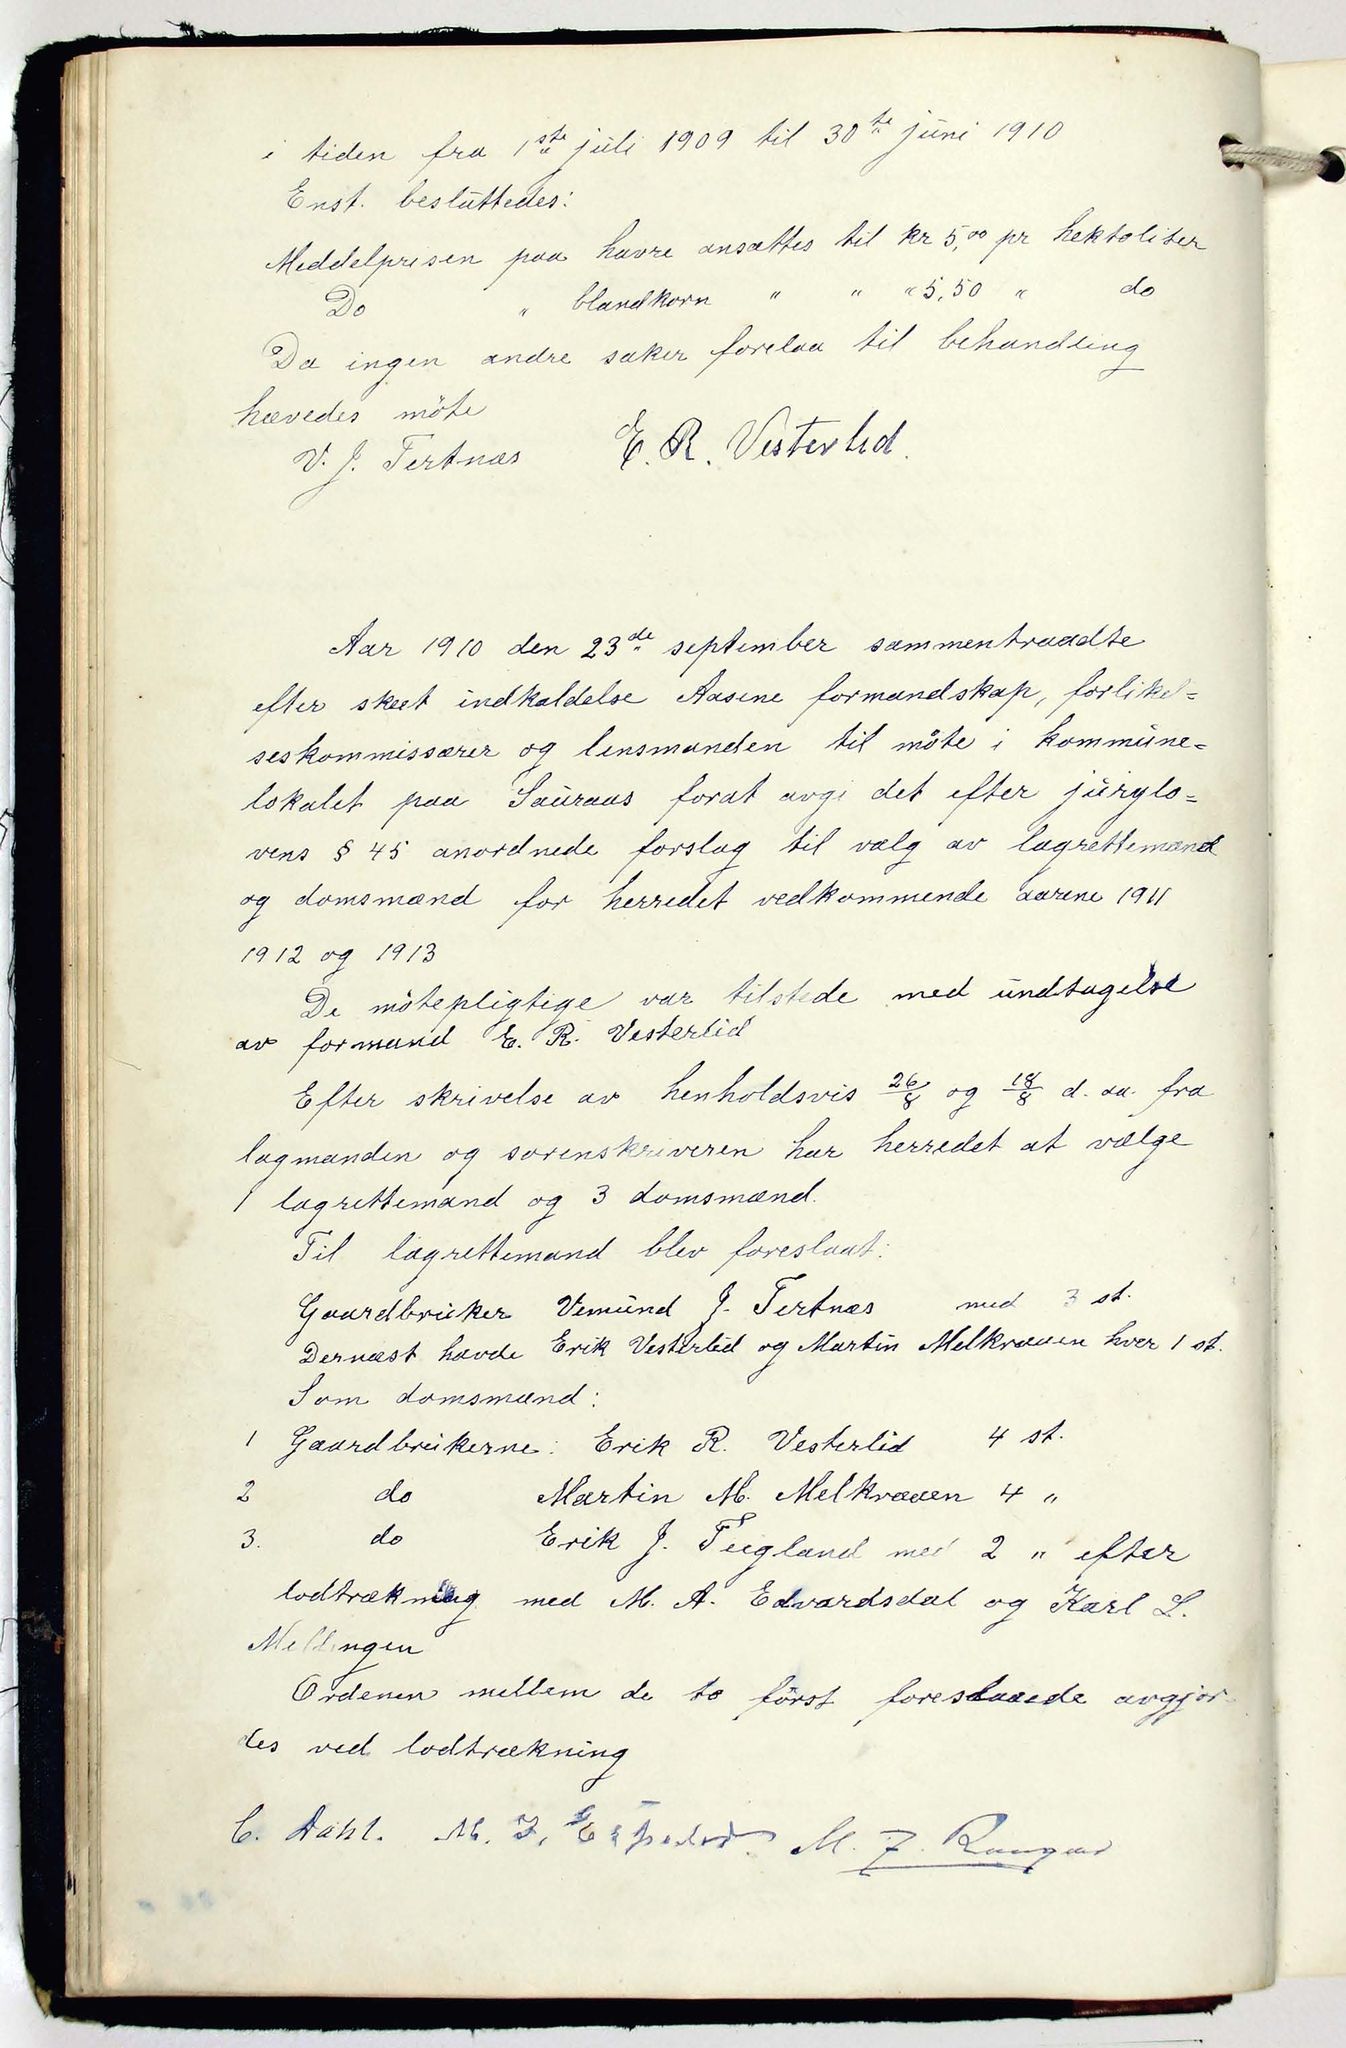 i tiden fra 1ste juli 1909 til 30te juni 1910
Enst. besluttedes:
Middelprisen paa havre ansættes til kr 5,00 pr hektoliter
Do " blandkorn " " " 5,50 " do
Da ingen andre saker forelaa til behandling
hævedes möte
V. J. Tertnæs E. R. Vesterlid.
Aar 1910 den 23de september sammentraadte
efter skeet indkaldelse Aasene formandskap, forlikel=
seskommissærer og lensmanden til möte i kommune=
lokalet paa Sauraas forat avgi det efter jurylo=
vens § 45 anordnede forslag til valg av lagrettemænd
og domsmænd for herredet vedkommende aarene 1911
1912 og 1913
De mötepligtige var tilstede med undtagelse
av formand E. R. Vesterlid
Efter skrivelse av henholdsvis 26/8 og 18/8 d. aa. fra
lagmanden og sorenskriveren har herredet at vælge
1 lagrettemand og 3 domsmænd.
Til lagrettemand blev foreslaat:
Gaardbruker Vemund J. Tertnæs med 3 st.
Dernæst havde Erik Vesterlid og Martin Melkraaen hver 1 st.
Som domsmænd:
1 Gaardbrukerne: Erik R. Vesterlid 4 st.
2 do Martin M. Melkraaen 4 "
3. do Erik J. Teigland med 2 " efter
lodtrækning med M. A. Edvardsdal og Karl L.
Mellingen
Ordenen mellem de to först foreslaaede avgjor-
des ved lodtrækning
C. Dahl. M. J. M. J. Raugar